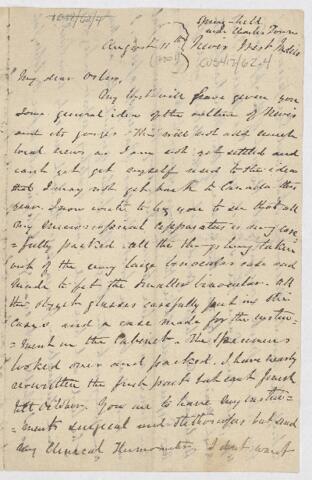 CUS417/62.4
Spring-field
near Charles Town
August 11th
Nevis West Indies
CUS417/62.4
My dear Osler,
My last will have given you
some general idea of the nature of Nevis
and its people. This will not add much
local news as I am not yet settled and
can't get get myself used to the idea
that I may not get back to Canada this
year. I now write to beg you to see that all
my microscopical apparatus is very care
=fully packed. all the things being taken
out of the very large binocular case and
made to fit the smaller binocular. all
the object glasses carefully put in their
cases and a case made for the instru-
=ment in the Cabinet. The specimens
looked over and packed. I have nearly
rewritten the first part but can't finish
till October. You are to have my instru-
=ments surgical and stethoscopes but send
my Clinical Thermometer. I don't want